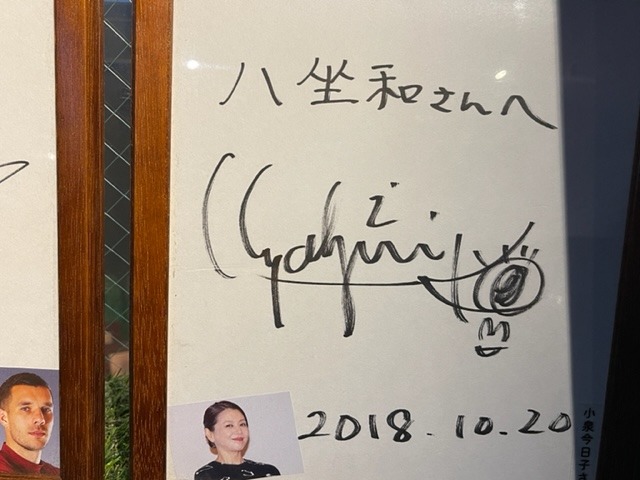 八坐和さんへ
2018.10.20
小泉今日子さ